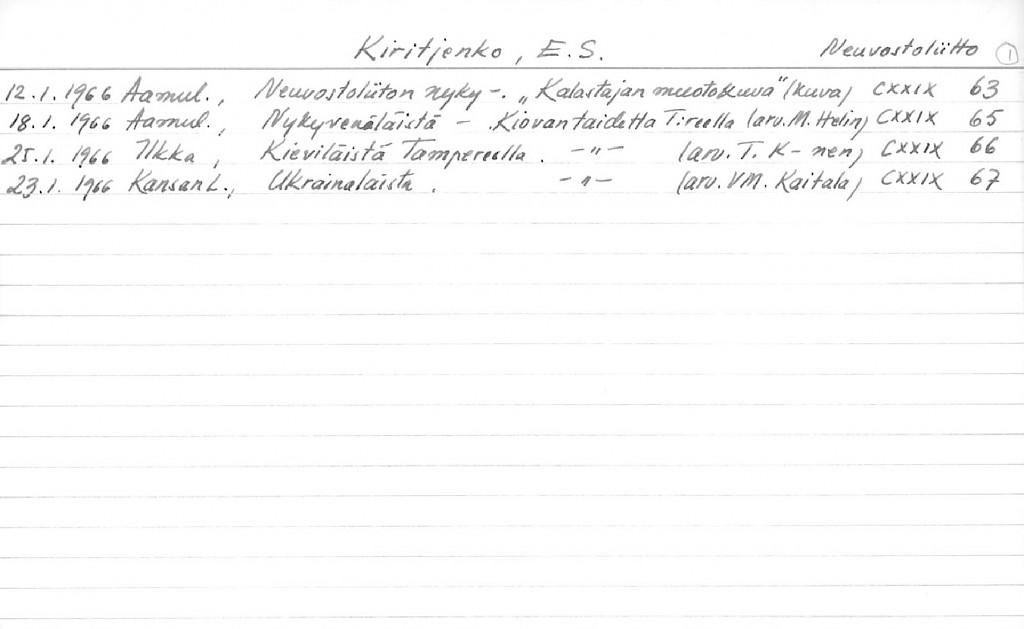 Kiritjenko, E.S. Neuvostoliitto 1
12.1.1966 Aamul., Neuvostoliiton nyky-. „Kalastajan muotokuva" (kuva) CXXIX 63
18.1.1966 Aamul., Nykyvenäläistä - Kiovan taidetta T:reella (arv. M. Helin) CXXIX 65
25.1.1966 Ilkka, Kieviläistä Tampereella. -"- (arv. T. K-nen) CXXIX 66
23.1.1966 Kansan L., Ukrainalaista. -"- (arv. VM. Kaitala) CXXIX 67